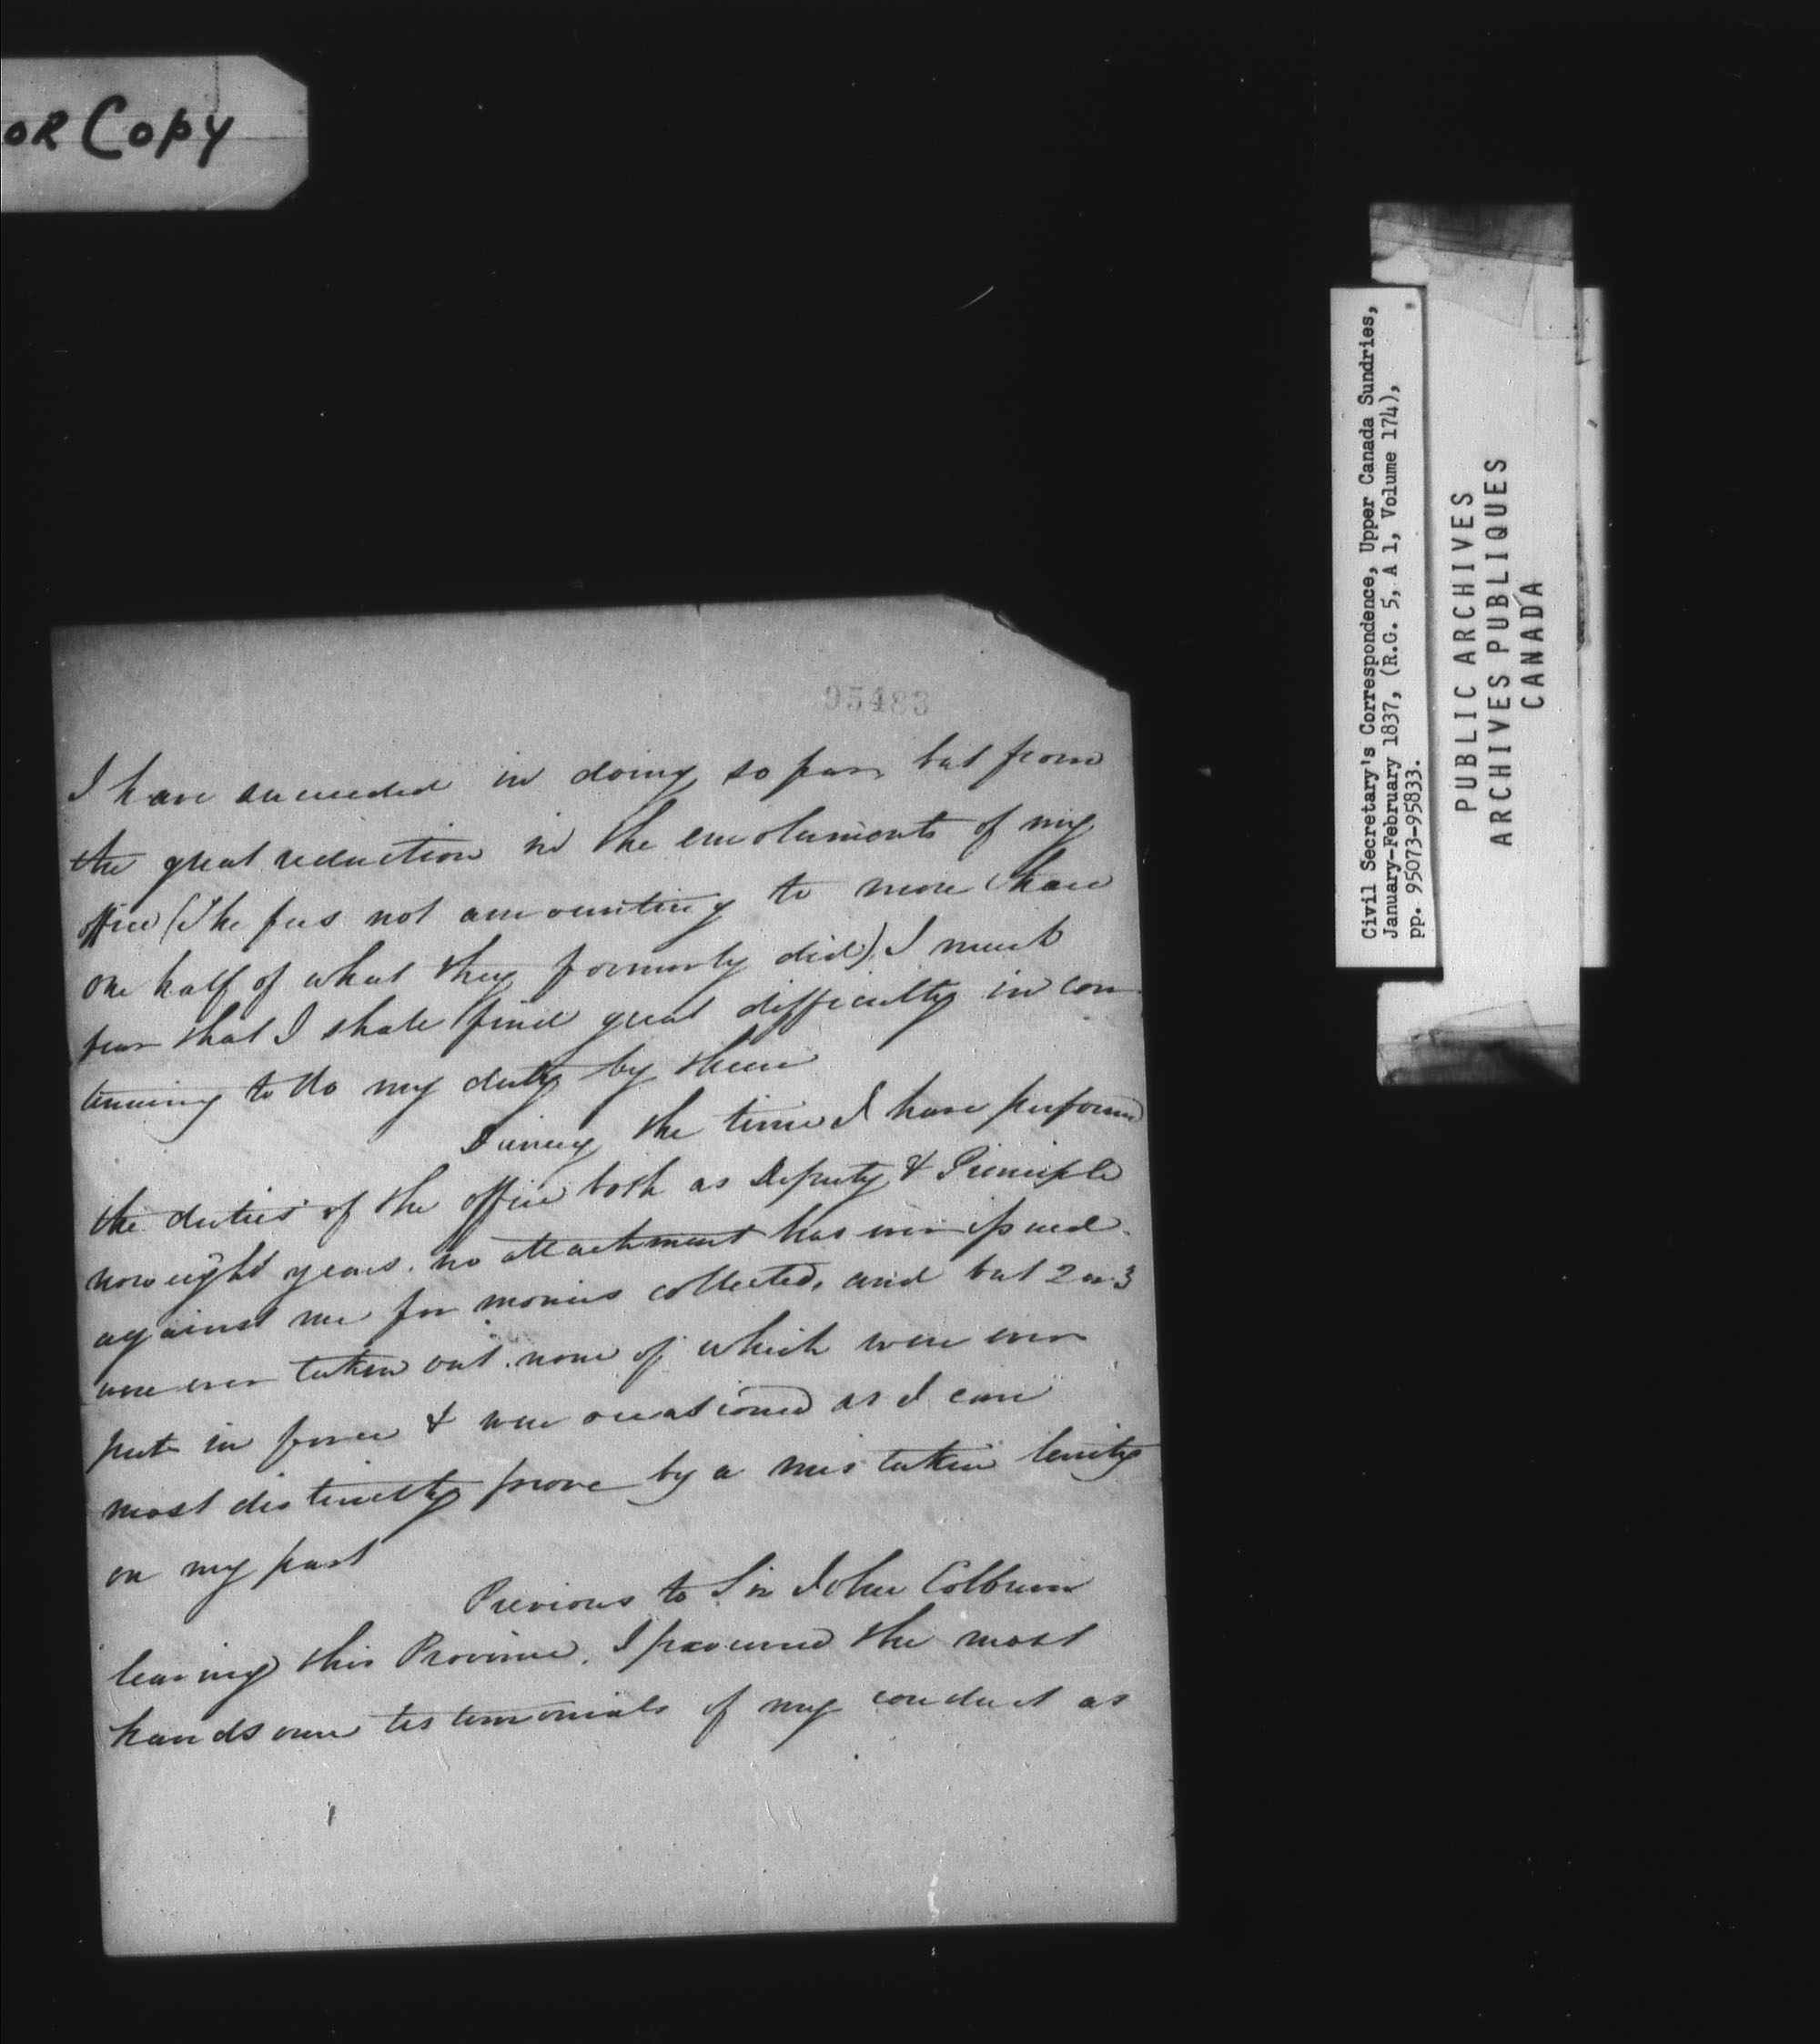 OR Copy
95483
I have succeeded in doing so far, but from
the great reduction in the emoluments of my
office (The fees not amounting to more than
one half of what they formerly did) I must
fear that I shall find great difficulty in con
tinuing to do my duty by them
During the time I have performed
the duties of the office both as Deputy & Principle
now eight years. no attachment has ever issued
against me for monies collected, and but 2 or 3
were ever taken out. none of which were ever
put in force & were occasioned as I can
most distinctly prove by a mistaken lenity
on my part
Previous to Sir John Colborne
leaving this Province, I procured the most
handsome testimonials of my conduct as
Civil Secretary's Correspondence, Upper Canada Sundries,
January-February 1837, (R.G. 5, A 1, Volume 174),
pp. 95073-95833.
PUBLIC ARCHIVES
ARCHIVES PUBLIQUES
CANADA